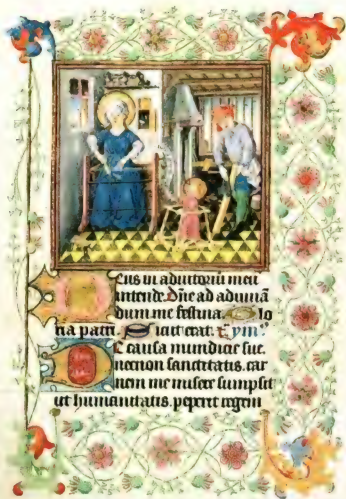 Deus in adiutoriū meū
intende. Dn̄e ad adiuuā
dum me festina. Glo
ria patri. Sicut erat. ymꝰ
causa mundicie sue.
necnon sanctitatis. car
nem me miser sumpsit
ut humanitatis. peperit regem